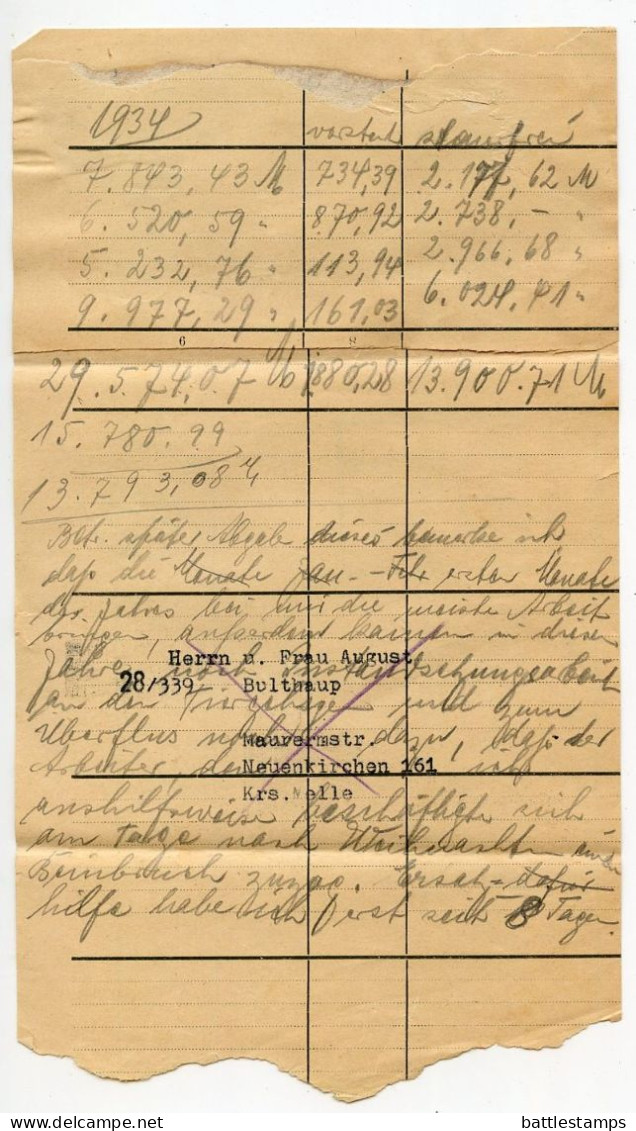 1934 steuerfrei
7.843,43 M 734,39 2.177,62 M
6.520,59 " 870,92 2.738,- "
5.232,76 " 113,94 2.966,68 "
9.977,29 " 161,03 6.024,41 "
6 8
29.574,07 M 1880,28 13.900.71 M
15.780.99
13.793,08
Betr. später Abgabe dieses bemerke ich
daß die Monate Jan.-Febr ersten Monate
des Jahres bei mir die meiste Arbeit
bringen, außerdem kamen in diesen
Jahre noch Instandsetzungsarbeit
an den und zum
Überflus noch dazu, daß der
Arbeiter, der
aushilfsweise beschäftigte sich
am Tage nach Weihnachten
Beinbruch zuzog. Ersatz-
hilfe habe ich erst seit 8 Tagen.
Herrn u. Frau August
28/339 Bulthaup
Maurermstr.
Neuenkirchen 161
Krs. Melle
battlestamps.com